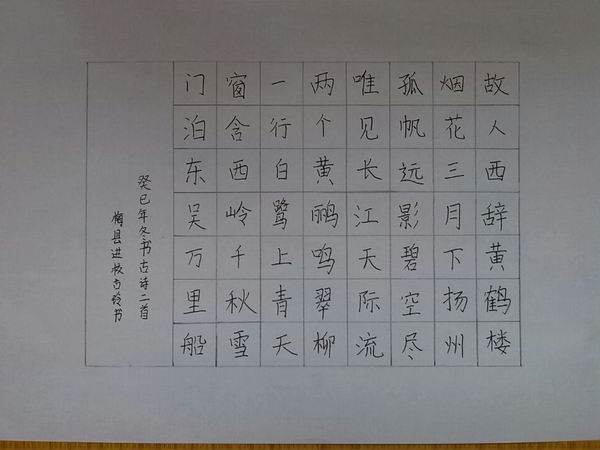 故人西辞黄鹤楼
烟花三月下扬州
孤帆远影碧空尽
唯见长江天际流
两个黄鹂鸣翠柳
一行白鹭上青天
窗含西岭千秋雪
门泊东吴万里船
癸巳年冬书古诗二首
梅县进校古书